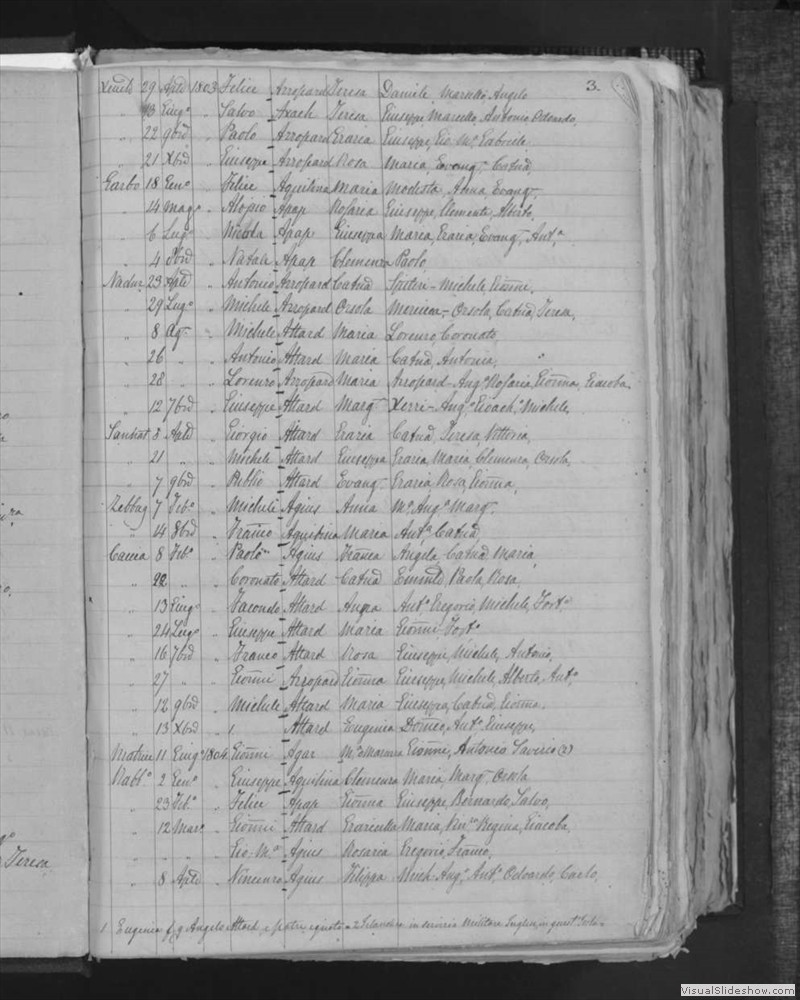 3.
Xeuch 29 Aple 1803 Felice Arropard Teresa Daniele, Marcello, Angelo
" 13 Giug° " Salvo Axach Teresa Giuseppe Marcello, Antonio Odoardo,
" 22 9bre " Paolo Arropard Grazia Giuseppe, Gio. Ma. Gabriele
" 21 Xbre " Giuseppe Arropard Rosa Maria, Evang. Catna,
Garbo 18 Gen° " Felice Aquilina Maria Modesta, Anna Evang.
" 14 Mag° " Aloisio Apap Rosaria Giuseppe, Clemente, Alberto,
" 6 Lug° " Nicola Apap Giuseppa Maria, Grazia, Evang. Anta
" 4 8bre " Natale Apap Clemenza Paolo
Nadur 23 Aple " Antonio Arropard Catna Spiteri - Michele, Gionne,
" 29 Lug° " Michele Arropard Orsola Orsola, Catna, Teresa,
" 8 Ag. " Michele Attard Maria Lorenzo Coronato,
" 26 " " Antonio Attard Maria Catna, Antonia,
" 28 " Lorenzo Arropard Maria Arropard - Anga Rosaria, Gionna, Giacoba
" 12 7bre " Giuseppe Attard Marg. Xerri - Ang° Gioach° Michele,
Sannat 8 Aple " Giorgio Attard Grazia Catna, Teresa, Vittoria,
" 21 " " Michele Attard Giuseppa Grazia, Maria, Clemenza, Orsola,
" 7 9bre " Publio Attard Evang. Grazia Rosa, Gionna,
Zebbug 7 Feb° " Michele Agius Anna Ma. Anga Marg.
" 14 8bre " Franco Aquilina Maria Anta Catna,
Caccia 8 Feb° " Paolo Agius Franca Angela, Catna Maria,
" 22 " " Coronato Attard Catna Paola, Rosa,
" 13 Giug° " Facondo Attard Angla Ant° Gregorio, Michele, Fort°
" 24 Lug° " Giuseppe Attard Maria Gionni, Fort°
" 16 7bre " Franco Attard Rosa Giuseppe, Michele, Antonio,
" 27 " " Gionni Arropard Gionna Giuseppe, Michele, Alberto, Ant°
" 12 9bre " Michele Attard Maria Giuseppa, Catna, Gionna,
" 13 Xbre " 1 Attard Eugenia Domco, Ant° Giuseppe,
Matrice 11 Giug° 1804 Gionni Agar Gionni, Antonio Saverio (2)
Rabb° 2 Gen° " Giuseppe Aquilina Clemenza Maria, Marg. Orsola
" 23 Feb° " Felice Apap Gionna Giuseppe, Bernardo, Salvo,
" 12 Mar° " Gionni Attard Graziulla Maria, Vinca Regina, Giacoba,
" " " Gio. Ma. Agius Rosaria Gregorio, Franco,
" 8 Aple " Vincenzo Agius Filippa Ang° Ant° Odoardo, Carlo,
1 Eugenia f. q. Angelo Attard, e padre ignoto - 2 Irlandese in servizio Militare Inglese in quest' Isola
Teresa